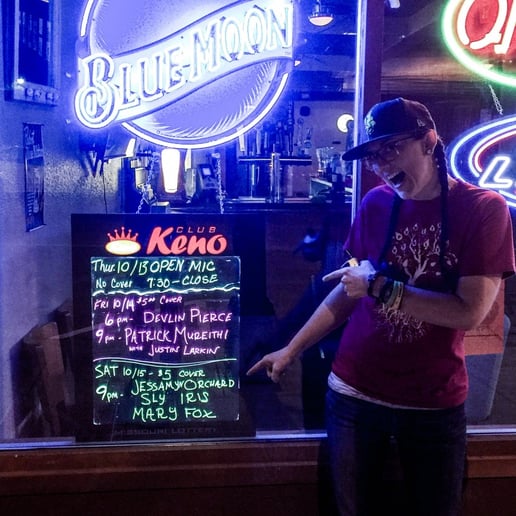 BLUE MOON
CLUB
Keno
Thur. 10/13 OPEN MIC
No Cover 7:30 - CLOSE
FRI 10/14 $5.00 COVER
6pm - DEVLIN PIERCE
9pm - PATRICK MUREITHI
WITH JUSTIN LARKIN
SAT 10/15 - $5 COVER
9pm - JESSAMYN ORCHARD
SLY IRIS
MARY FOX
MISSOURI LOTTERY